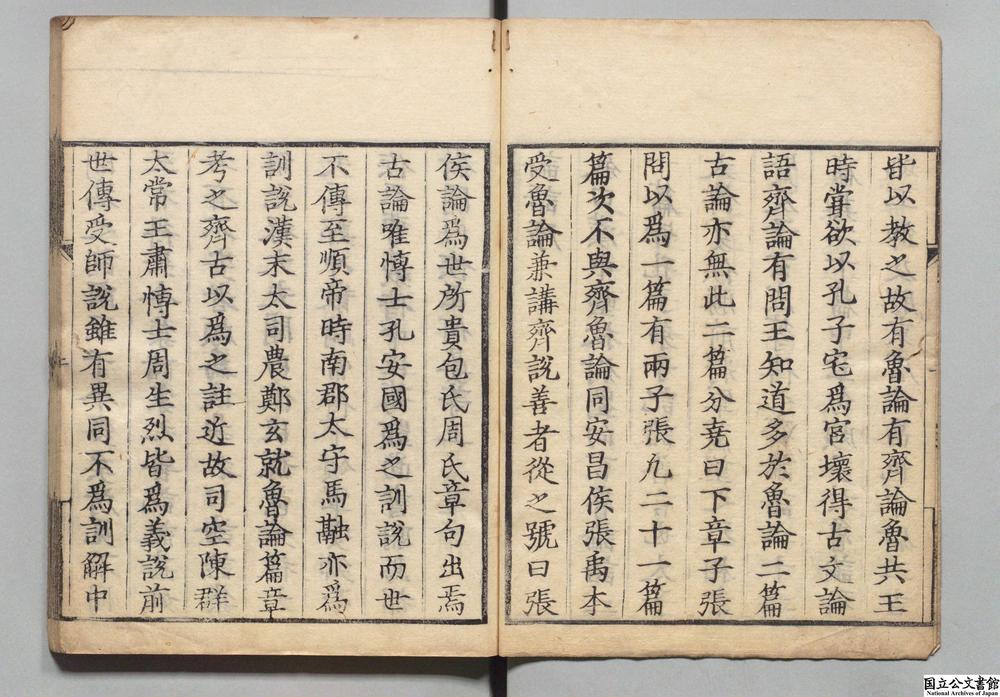 皆以教之故有魯論有齊論魯共王
時甞欲以孔子宅爲宮壞得古文論
語齊論有問王知道多於魯論二篇
古論亦無此二篇分尭曰下章子張
問以爲一篇有兩子張凢二十一篇
篇次不與齊魯論同安昌侯張禹本
受魯論兼講齊說善者從之號曰張
侯論爲世所貴包氏周氏章句出焉
古論唯愽士孔安國爲之訓說而世
不傳至順帝時南郡太守馬融亦爲
訓說漢末太司農鄭玄就魯論篇章
考之齊古以爲之註近故司空陳群
太常王肅愽士周生烈皆爲義說前
世傳受師說雖有異同不爲訓解中
国立公文書館
National Archives of Japan